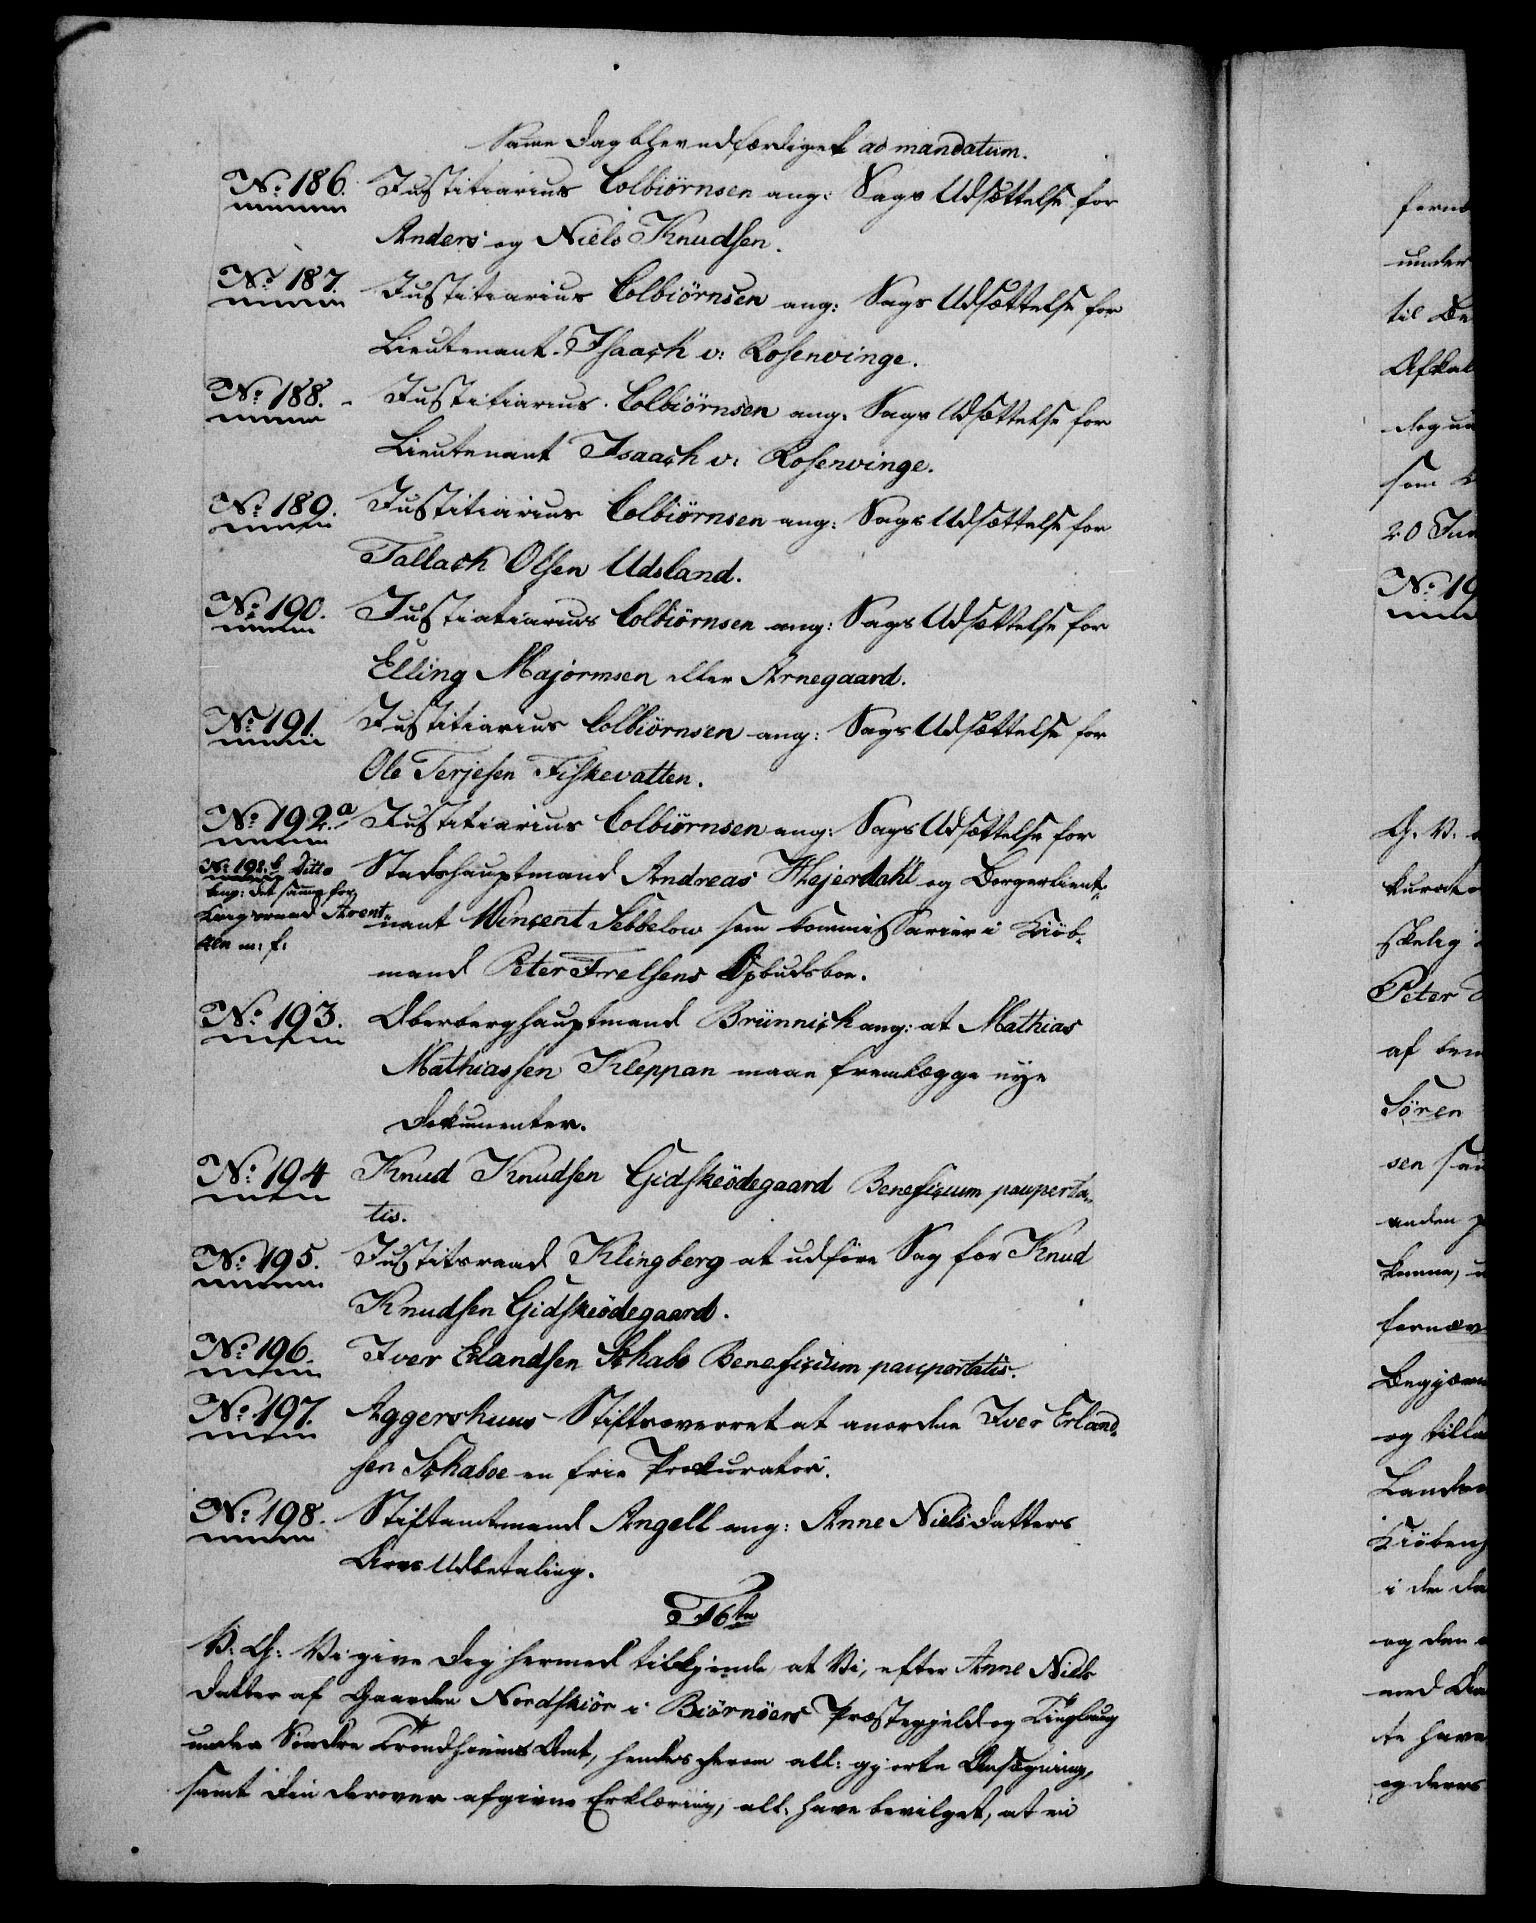 Samme Dag blev udfærdiget ad mandatum.
No: 186. Justitiarius Colbiörnsen ang: Sags Udsættelse for
Anders og Niels Knudsen.
No: 187. Justitiarius Colbiörnsen ang: Sags Udsættelse for
Lieutenant Isaach v: Rosenvinge.
No: 188. - Justitiarius Colbiörnsen ang: Sags Udsættelse for
Lieutenant Isaach v: Rosenvinge.
No: 189. Justitiarius Colbiörnsen ang: Sags Udsættelse for
Tallach Olsen Udsland.
No: 190. Justiatiarius Colbiörnsen ang: Sags Udsættelse for
Elling Majormsen eller Arnegaard.
No: 191. Justitiarius Colbiörnsen ang: Sags Udsættelse for
Ole Terjesen Fiskevatten.
No: 192.a Justitiarius Colbiörnsen ang: Sags Udsættelse for
No: 192.b Ditto
ang: det samme for
Arent-
sen m: f:
Stadshauptmand Andreas Hejerdahl og Borgerlieut-
nant Wincent Sebbelow som Kommissarier i Kiöb-
mand Peter Frelsens Opbudsboe.
No: 193. Oberberghauptmand Brünnich ang: at Mathias
Mathiassen Kleppan maae fremlægge nye
Dokumenter.
No: 194 Knud Knudsen Gidskeödegaard Beneficium pauperta-
tis.
No: 195. Justitsraad Klingberg at udföre Sag for Knud
Knudsen Gidskeödegaard.
No: 196. Iver Erlandsen Schabo Beneficium paupertatis.
No: 197. Aggershuus Stiftsoverret at anordne Iver Erland-
sen Schaboe en frie Prokurator.
No: 198. Stiftamtmand Angell ang: Anne Nielsdatters
Arvs Udbetaling.
T 16de
V: G: Vi give Dig hermed tilkjende, at Vi, efter Anne Niels
Datter af Gaarden Nordskiör i Biörnöers Præstegjeld og Tinglaug
under Söndre Trondhiems Amt, hendes herom all: gjorte Ansøgning,
samt Din derover afgivne Erklæring, all: have bevilget, at en
under
til Be
som
20 Jun
No: 19
G. V.
Peter
af
Sören
sen
anden
og till
Kiöbenh
i de
og den
med
te have
og deres